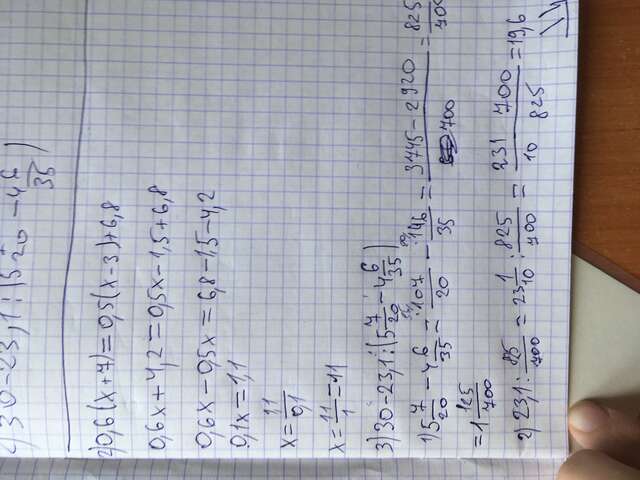 30-23,1:(5 /20 -4 6/35)
2) 0,6(x+7)=0,5(x-3)+6,8
0,6x+4,2=0,5x-1,5+6,8
0,6x-0,5x=6,8-1,5-4,2
0,1x=1,1
x=1,1/0,1
x=11/1=11
3) 30-23,1:(5 7/20 - 4 6/35)
1) 5 7/20 - 4 6/35 = 107/20 - 146/35 = 3745-2920/700 = 825/700
=1 125/700
2) 23,1: 825/700 = 23 1/10 : 825/700 = 231 700/10 825 =19,6